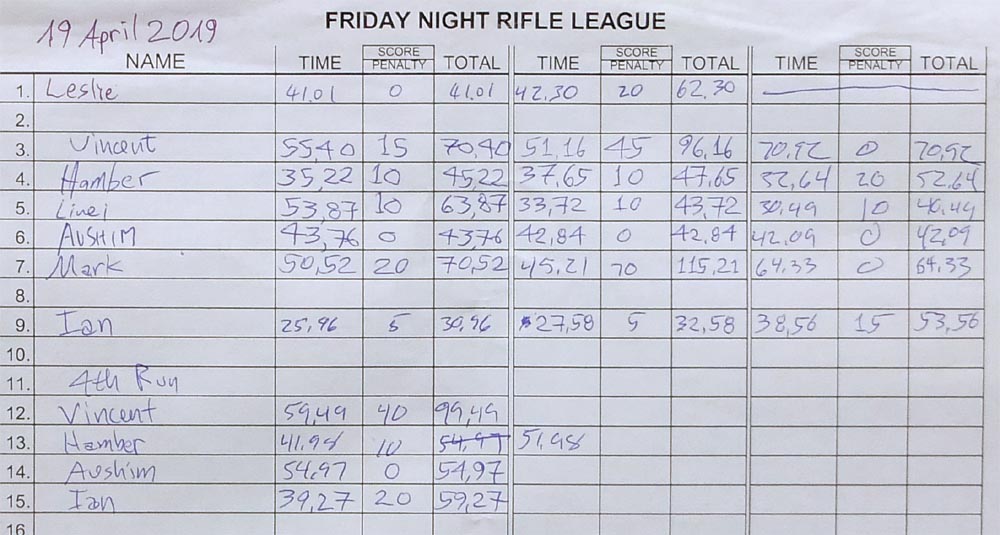 19 April 2019
FRIDAY NIGHT RIFLE LEAGUE
NAME TIME SCORE PENALTY TOTAL TIME SCORE PENALTY TOTAL TIME SCORE PENALTY TOTAL
1. Leslie 41.01 0 41.01 42.30 20 62.30
2.
3. Vincent 55,40 15 70,40 51,16 45 96,16 70,92 0 70,92
4. Hamber 35,22 10 45,22 37,65 10 47,65 32,64 20 52,64
5. 53,87 10 63,87 33,72 10 43,72 30,49 10 40,49
6. AVSHIM 43,76 0 43,76 42,84 0 42,84 42.09 0 42,09
7. Mark 50,52 20 70,52 45,21 70 115,21 64.33 0 64.33
8.
9. Ian 25,96 5 30,96 27,58 5 32,58 38,56 15 53,56
10.
11. 4th Run
12. Vincent 59,49 40 99,49
13. Hamber 41,98 10 54,97 51,98
14. Avshim 54,97 0 54,97
15. Ian 39,27 20 59,27
16